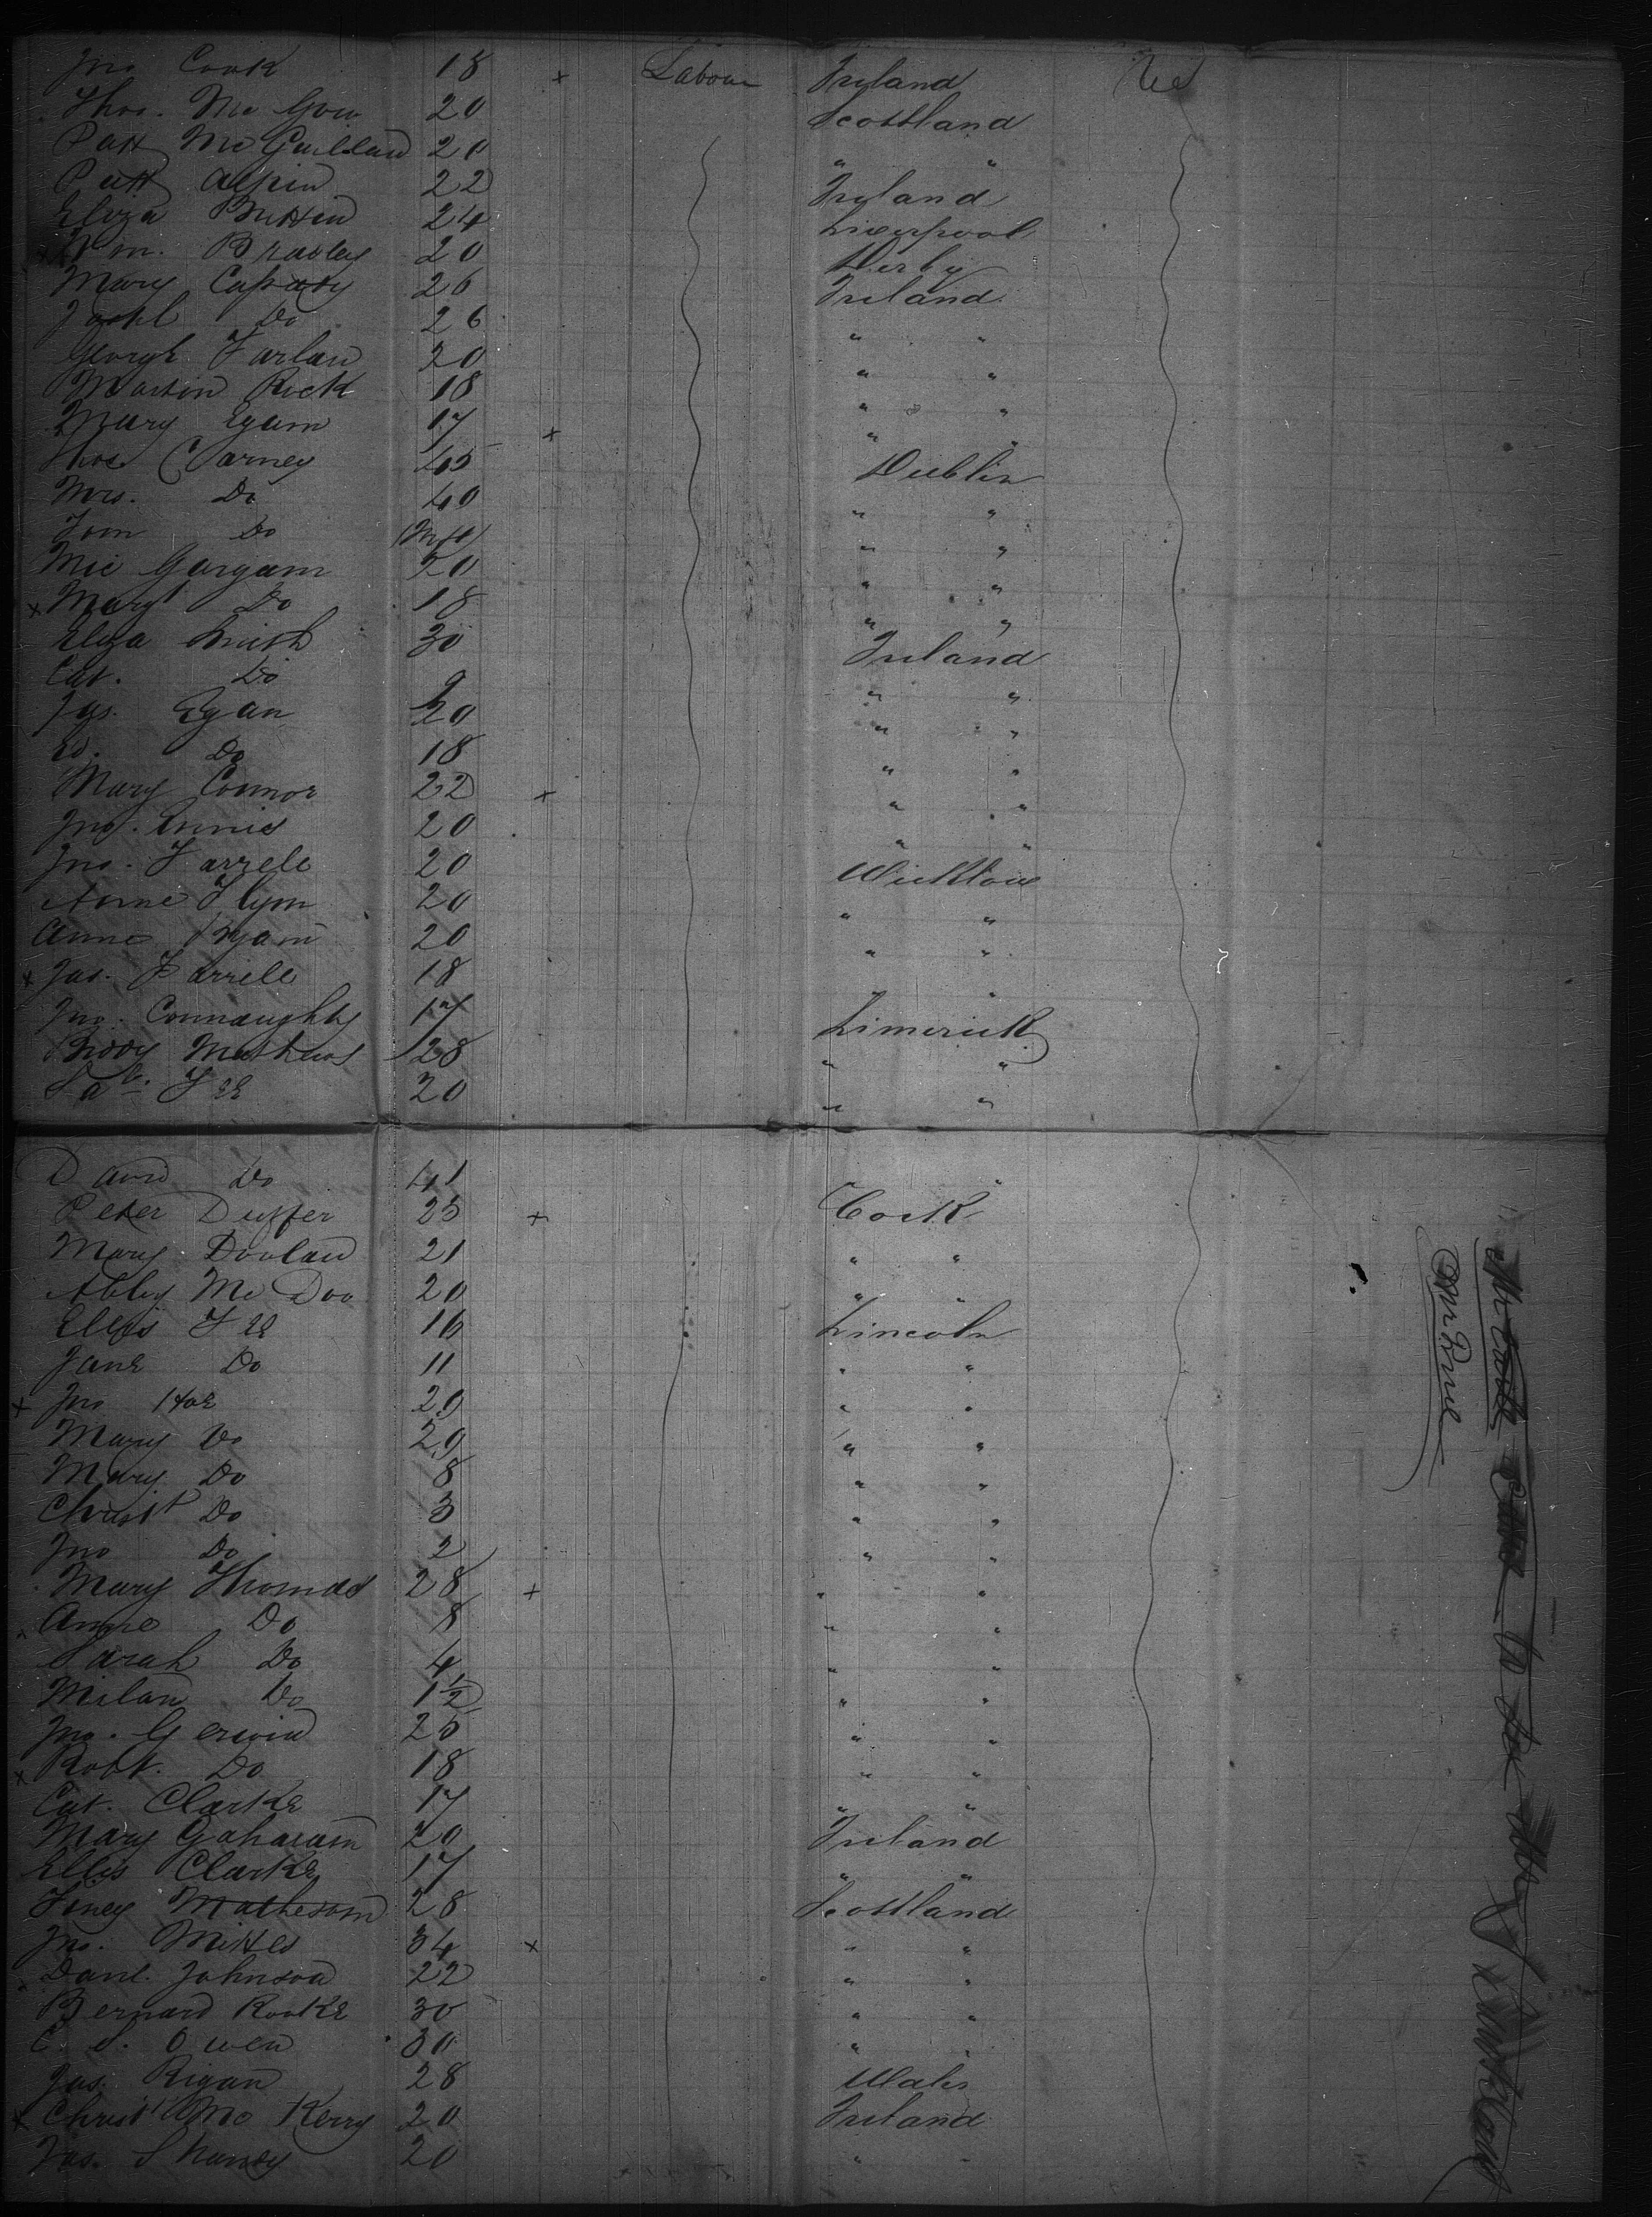 Jno Cook 18 x Labour Ireland
Thos. Mc Gow 20 Scottland
Patt Mc 20 " "
Patt Alpin 22 Ireland
Eliza 24 Liverpool
Wm. Bradley 20 Derby
Mary 26 Ireland
Do 26 " "
George Farlan 20 " "
Martin Rock 18 " "
Mary Egam 17 x " "
Thos. Carney 45 Dublin
Mrs. Do 40 " "
Tom Do " "
Mic Gargam 20 " "
x Margt Do 18 " "
Eliza Smith 30 Ireland
Cat. Do 9 " "
Jas. Egan 20 " "
Ed. Do 18 " "
Mary Connor 22 x " "
Jno. Ennis 20 " "
Jno. Farrell 20 Wicklow
Anne Flym 20 " "
Anne Ryam 20 " "
x Jas. Farrell 18 "
Jno. Connaughty 17 Limerick
Biddy Mathews 28 " "
20 " "
David Do 41 "
Peter Duffer 25 x Cork
Mary Doolan 21 " "
Abby Mc Doo 20 " "
Ellis 16 Lincoln
Jane Do 11 " "
x Jno Hoe 29 " "
Mary Do 29 " "
Mary Do 8 " "
Christ Do 3 " "
Jno Do 2 " "
Mary Thomas 28 x " "
Anne Do 8 " "
Sarah Do 4 " "
Milan Do 1½ " "
Jno. Gerwin 25 " "
x Robt. Do 18 " "
Cat. Clarke 17 " "
Mary Gaharam 20 Ireland
Ellis Clarke 17 " "
Matheson 28 Scottland
Jno. 34 x " "
Danl. Johnson 22 " "
Bernard Rooke 30 " "
C. S. Owen 30 " "
Jas. Rigan 28 Wales
x Christ Mc Kerry 20 Ireland
Jas. Shaney 20 " "